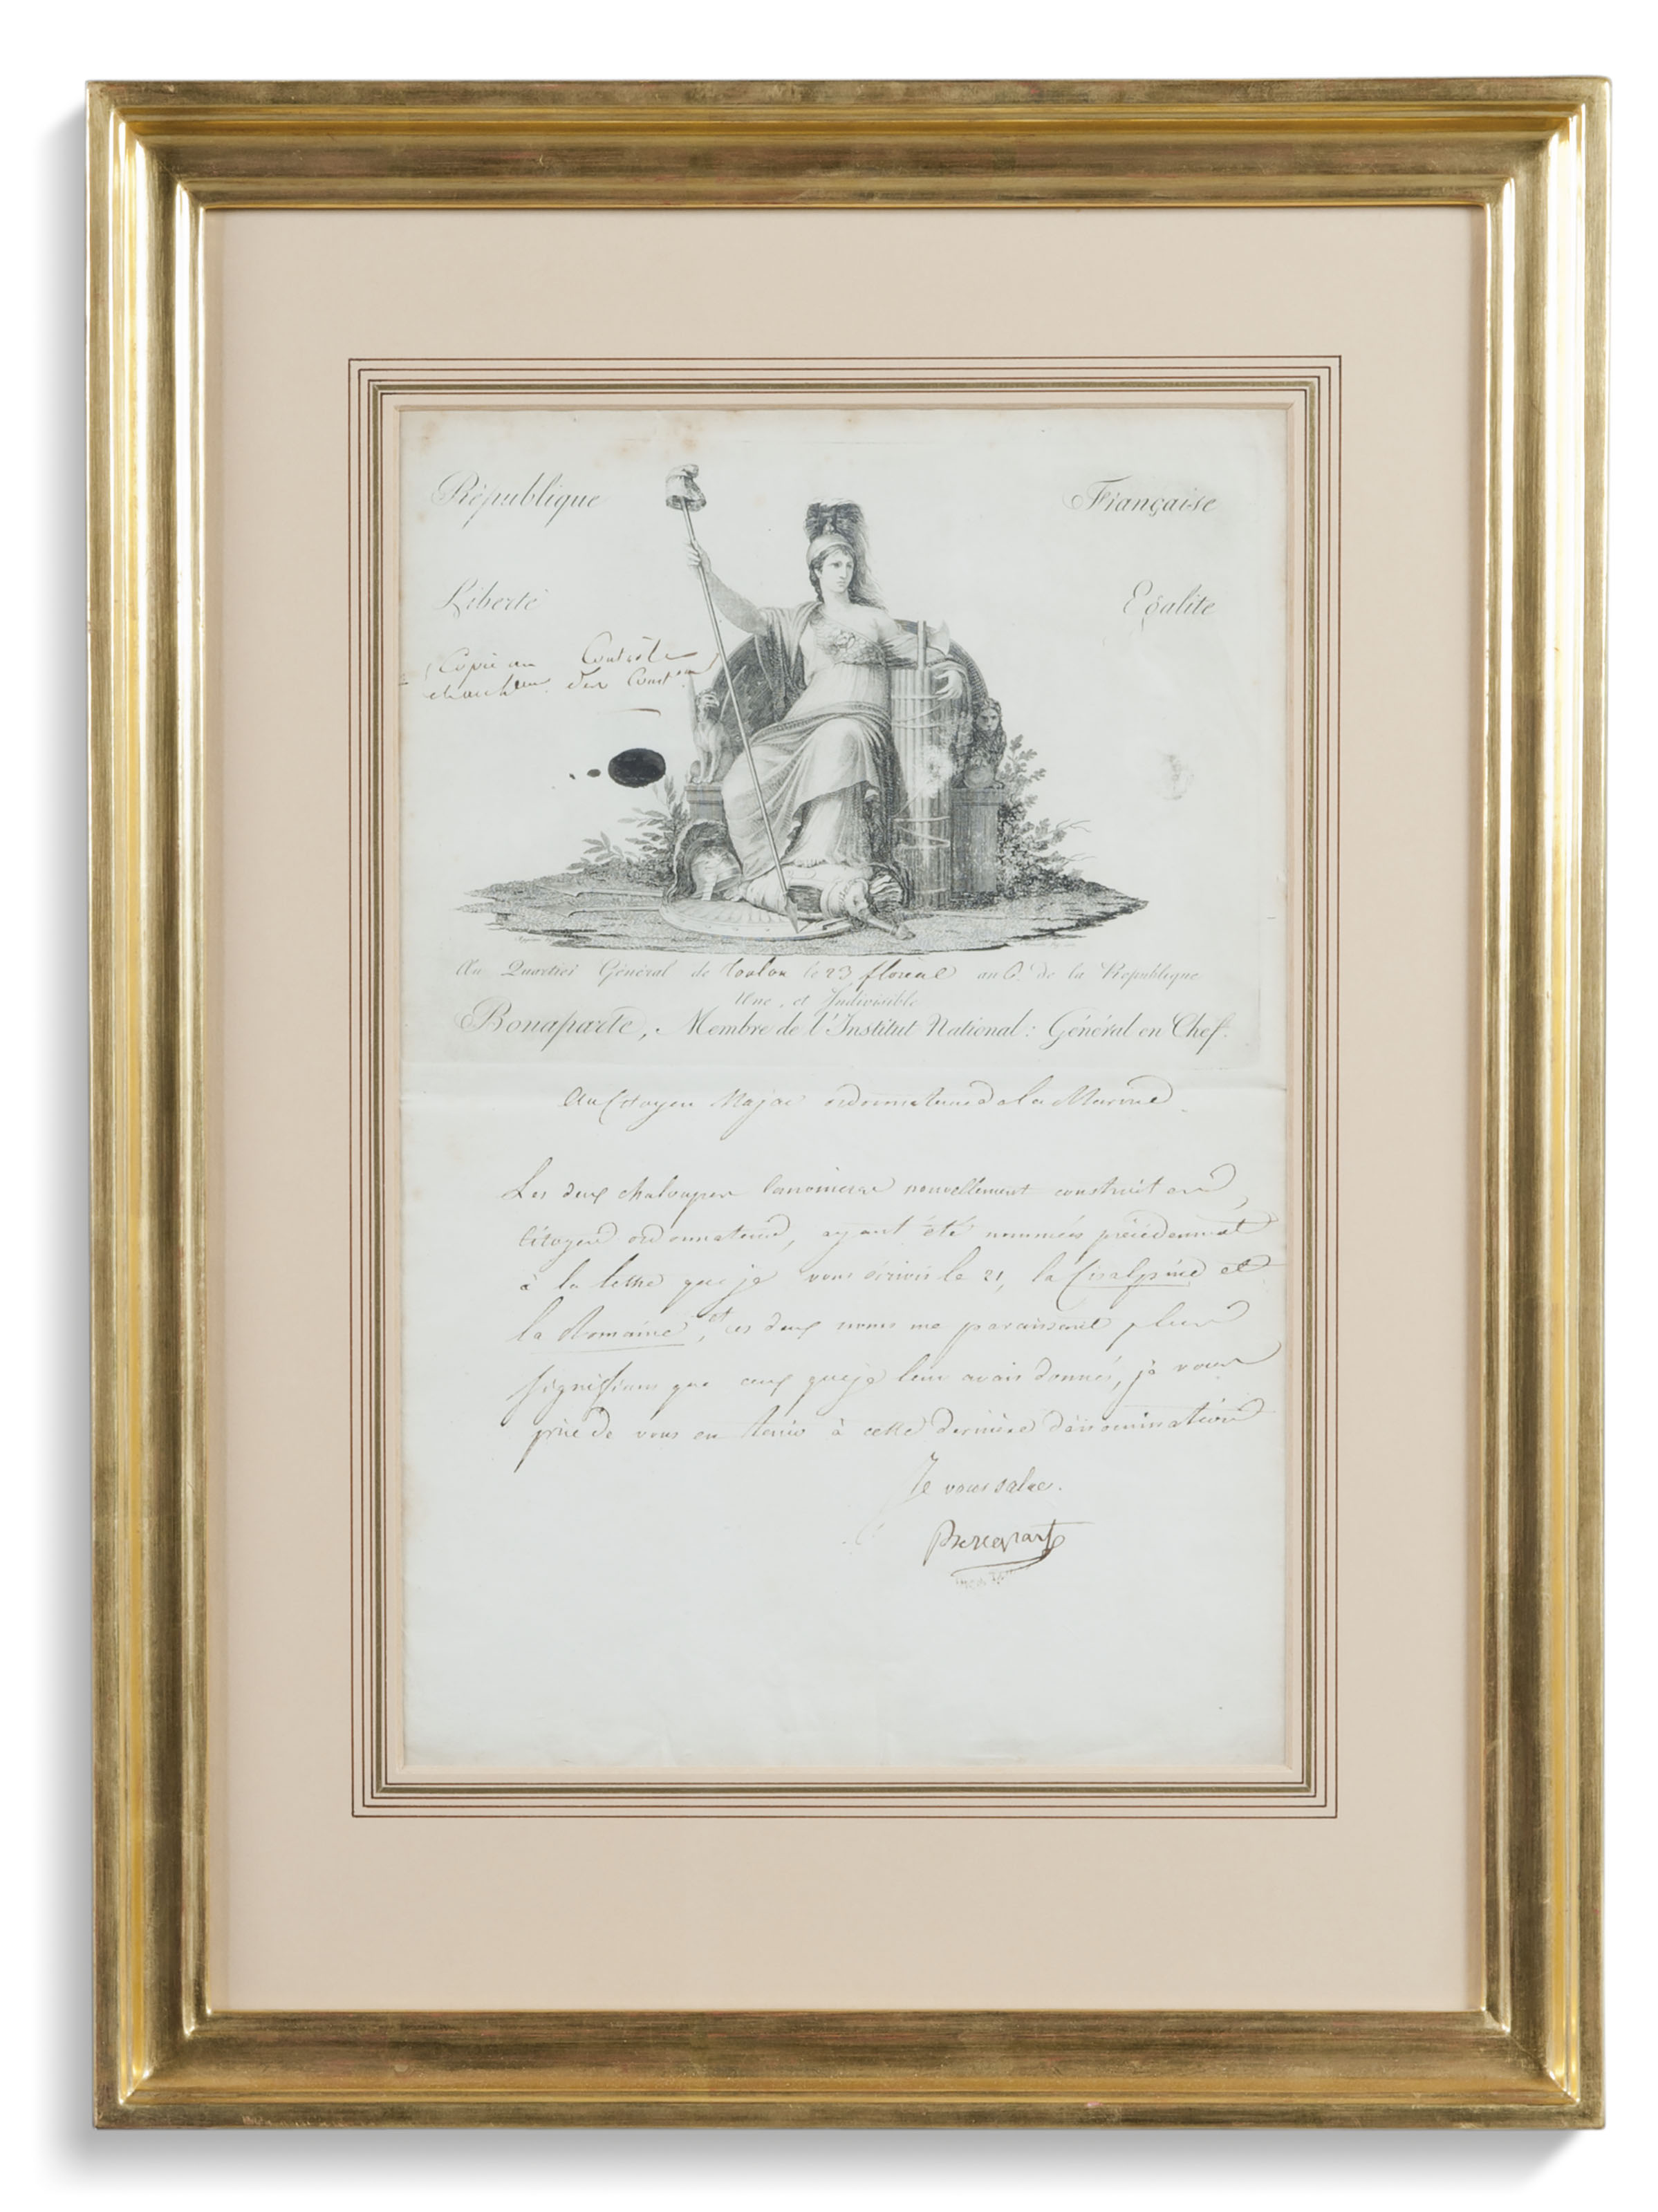 République Française
Liberté Egalite
(Copie au Contrôle
des Const.on)
Au Quartier Général de toulon le 23 floreal an 6.e de la République
Une, et Indivisible
Bonaparte, Membre de l'Institut National: Général en Chef.
Au Citoyen Najac ordonnateur de la Marine
Les deux chaloupes canonieres nouvellement construites,
Citoyen ordonnateur, ayant été nommées précédemmt
à la lettre que je vous écrivis le 21, la Cisalpine et
la Romaine, et ces deux noms me paraissant plus
significans que ceux que je leur avais donnés, je vous
prie de vous en tenir à cette dernière dénomination
Je vous salue.
Bonaparte